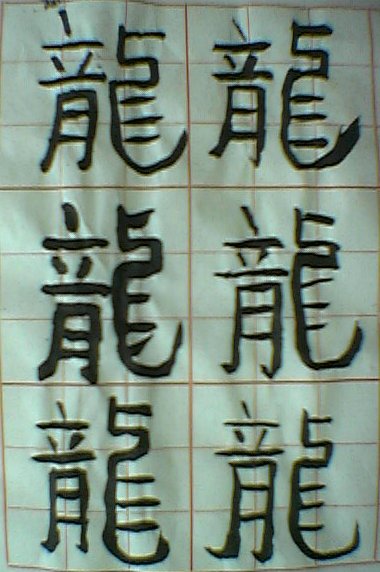 龍 龍
龍 龍
龍 龍